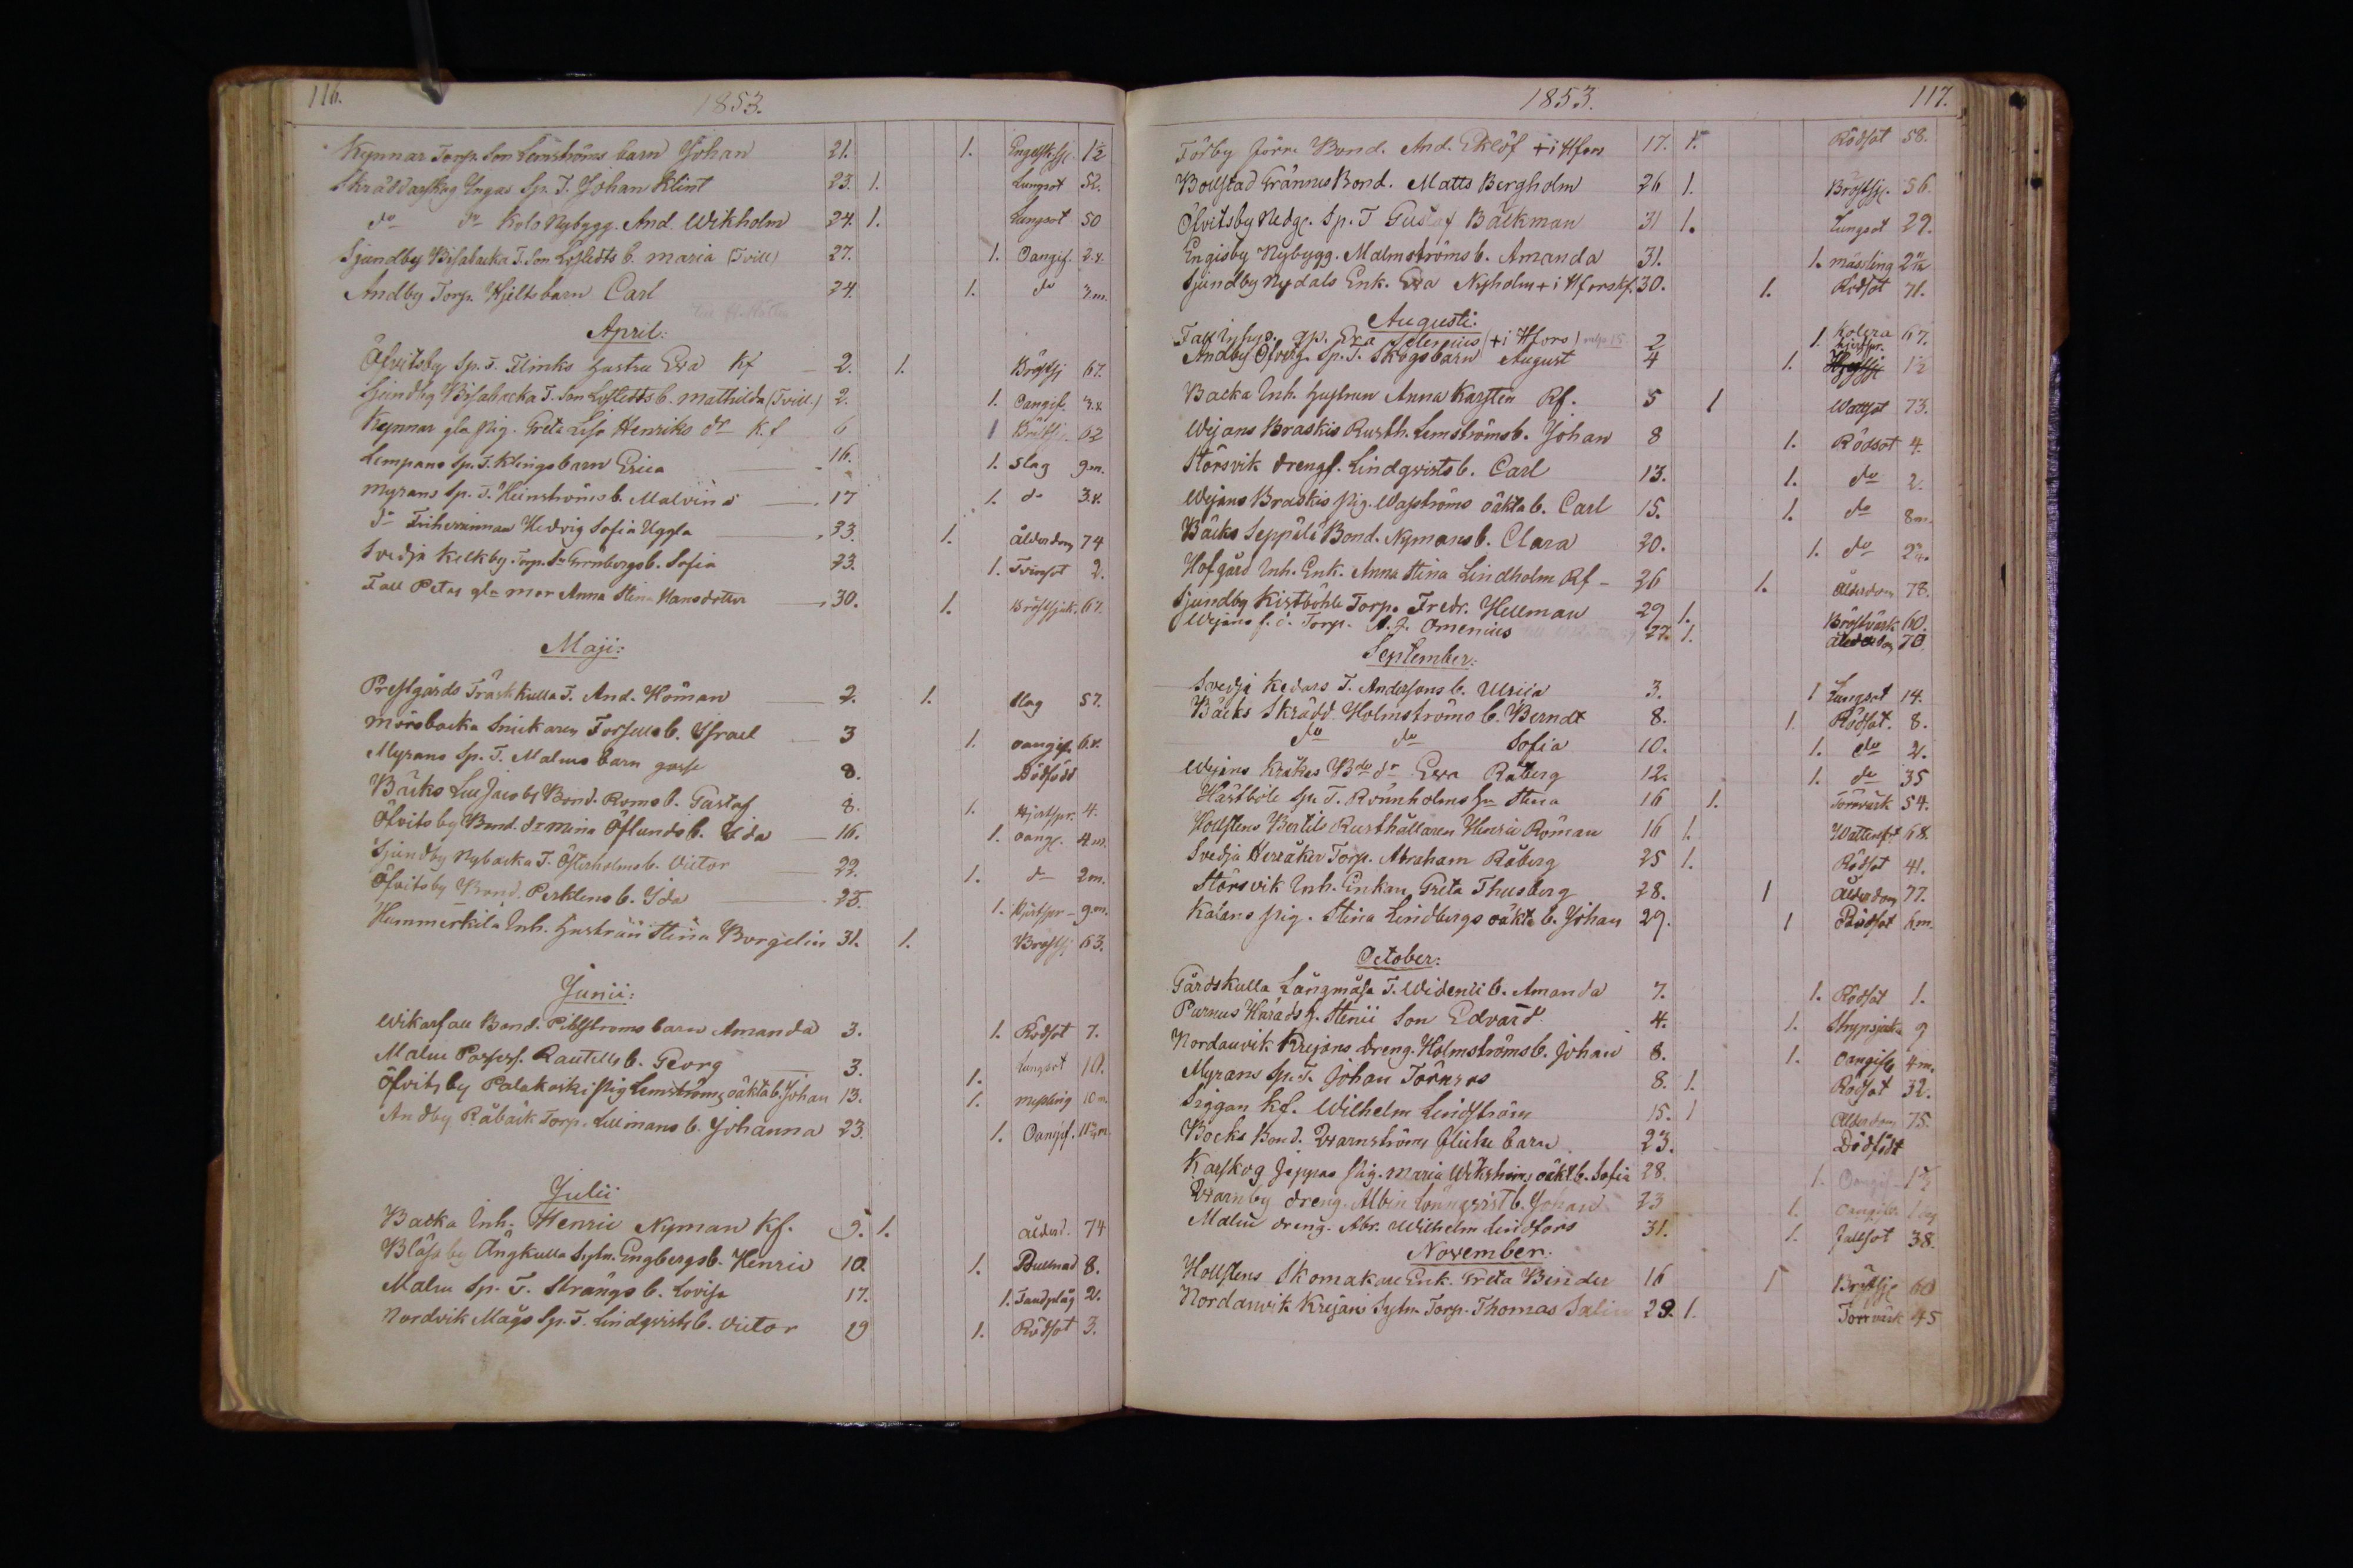 116.
1853.
Kynnar Torp. Son Lemströms barn Johan 21. 1. Engelsk sj. 1½
Skräddarskog Ungas Sp. T. Johan Klint 23. 1. Lungsot 52.
do do Kolo Nybygg. And. Wikholm 24. 1. Lungsot 50
Sjundby Bisabacka T. Son Lofstedts b. Maria (Tvill) 27. 1. Oangif. 2.v.
Andby Torp. Hjelts barn Carl 24. 1. do 3.m.
April:
Öfvitsby Sp. T. Flinks hustru Eva Kf 2. 1. Bröstsj 67.
Sjundby Bisabacka T. Son Lofstedts b. Mathilda (Tvill.) 2. 1. Oangif. 3.v.
Kynnar gla Pig. Greta Lisa Henriks dr K.f 6 1 Bröstsj. 62
Lempans Sp. T. Klings barn Erica 16. 1. Slag 9.m.
Myrans Sp. T. Heinströms b. Malvina 17 1. do 3.v.
do Friherrinnan Hedvig Sofia Uggla 23. 1. Ålderdom 74
Svedja Kelkby Torp. Sn Grönbergs b. Sofia 23. 1. Tvinsot 2.
Fall Petas gla mor Anna Stina Hansdotter 30. 1. Bröstsjuk. 67.
Maji:
Prestgårds Träskkulla T. And. Homan 2. 1. Slag 57.
Morsbacka Snickaren Forsells b. Israel 3 1. oangif. 6.v.
Myrans Sp. T. Malms barn gosse 8. Dödfödt
Bäcks Lill Jacobs Bond. Roms b. Gustaf 8. 1. Hjertspr. 4.
Öfvitsby Bond. dr Mina Öflunds b. Ida 16. 1. oangf. 4 m.
Sjundby Nybacka T. Österholms b. Victor 22. 1. do 2m.
Öfvitsby Bond. Perklens b. Ida 25. 1. Hjertspr 9.m.
Hummerkila Inh. Hustrun Stina Borgelin 31. 1. Bröstsj 63.
Junii:
Wikarfall Bond. Pihlströms barn Amanda 3. 1. Rödsot 7.
Malm Possess. Rautells b. Georg 3. 1. Lungsot 10.
Öfvitsby Palakoski Pig Lemströms oäkta b. Johan 13. 1. messling 10 m.
Andby Råbäck Torp. Lillmans b. Johanna 23. 1. Oangif. 11½m.
Julii
Backa Inh. Henric Nyman Kf. 9. 1. ålderd. 74
Blåsaby Ängkulla Sytn. Engbergs b. Henric 10. 1. Bullnad 8.
Malm Sp. T. Strångs b. Lovisa 17. 1. Tandplåg 2.
Nordvik Mågs Sp. T. Lindqvists b. Victor 19 1. Rödsot 3.
1853. 117.
Törby Jörn. Bond. And. Eklöf + i Hfors 17. 1. Rödsot 58.
Bollstad Grännus Bond. Matts Bergholm 26 1. Bröstsj. 56.
Öfvitsby Nedg. Sp. T Gustaf Bäckman 31 1. Lungsot 29.
Engisby Nybygg. Malmströms b. Amanda 31. 1. mässling
Sjundby Nydals Enk. Eva Nyholm + i Hfors Kf. 30. 1. Rödsot 71.
Augusti:
Fall gp. Eva Selenius (+ i Hfors) 2 1. Kolera 67.
Andby Öfverg. Sp. T. Skogs barn August 4 1. hjertspr. 1½
Backa Inh. Hustrun Anna Karsten Rf. 5 1 Wattsot 73.
Wejans Braskis Rusth. Lemströms b. Johan 8 1. Rödsot 4.
Störsvik Drengs. Lindqvists b. Carl 13. 1. do 2.
Wejans Braskis Pig. Wasströms oäkta b. Carl 15. 1. do 8m.
Bäcks Seppälä Bond. Nymans b. Clara 20. 1. do
Hofgård Inh. Enk. Anna Stina Lindholm Rf - 26 1. Ålderdom 78.
Sjundby Kistböhle Torp. Fredr. Hellman 29 1. Bröstvärk 60.
Wejans f. d. Torp. A. J. Omenius 27. 1. ålderdom 70.
September:
Svedja Kedars T. Anderssons b. Ulrica 3. 1 Lungsot 14.
Bäcks Skrädd. Holmströms b. Berndt 8. 1. Rödsot. 8.
do do Sofia 10. 1. do 2.
Wejans Kråkas Bdo dr Eva Råberg 12. 1. do 35
Hästböle Sp. T. Rönnholms Hu Stina 16 1. Torrvärk 54.
Hollstens Bertils Rusthållaren Henric Roman 16 1. Wattensot 68.
Svedja Heråker Torp. Abraham Råberg 25 1. Rödsot 41.
Störsvik Inh. Enkan Greta Thusberg 28. 1 Ålderdom 77.
Kälans Pig. Stina Lindbergs oäkta b. Johan 29. 1 Rödsot 6m.
October:
Gårdskulla Långmåsa T. Widenii b. Amanda 7. 1. Rödsot 1.
Purnus Härads h. Stenii Son Edvard 4. 1. Strypsjuka 9
Nordanvik Krejans Dreng. Holmströms b. Johan 8. 1. Oangife 4m.
Myrans Sp. T. Johan Törnros 8. 1. Rödsot 32.
Siggan Kf. Wilhelm Lindström 15. 1 Ålderdom 75.
Böcks Bond. Qvarnströms flicke barn 23. Dödfödt
Karskog Jeppas Pig. Maria Wikströms oäkt b. Sofia 28. 1. Oangif
Qvarnby Dreng. Albin Lönnqvist b. Johan 23 1. Oangife 1 dag
Malm Dreng. Abr. Wilhelm Lindfors 31. 1. Fallsot 38.
November:
Hollstens Skomakare Enk. Greta Binder 16 1 Bröstsj. 60
Nordanvik Krejans Sytn. Torp. Thomas Salin 29. 1. Torrvärk 45